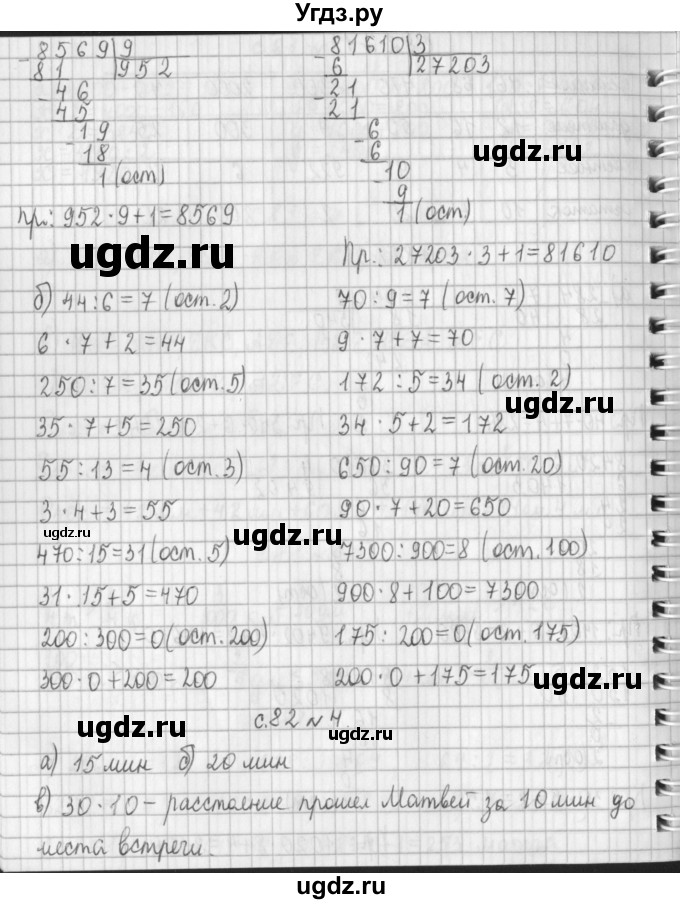 Угдз.ру
8569 9
81 952
46
45
19
18
1 (ост)
пр.: 952 · 9 + 1 = 8569
81610 3
6 27203
21
21
6
6
10
9
1 (ост)
Пр.: 27203 · 3 + 1 = 81610
ugdz.ru
ugdz.ru
б) 44 : 6 = 7 (ост. 2) 70 : 9 = 7 (ост. 7)
6 · 7 + 2 = 44 9 · 7 + 7 = 70
250 : 7 = 35 (ост. 5) 172 : 5 = 34 (ост. 2)
ugdz.ru
35 · 7 + 5 = 250 34 · 5 + 2 = 172
55 : 13 = 4 (ост. 3) 650 : 90 = 7 (ост. 20)
3 · 4 + 3 = 55 90 · 7 + 20 = 650
ugdz.ru ugdz.ru
470 : 15 = 31 (ост. 5) 7300 : 900 = 8 (ост. 100)
31 · 15 + 5 = 470 900 · 8 + 100 = 7300
200 : 300 = 0 (ост. 200) 175 : 200 = 0 (ост. 175)
300 · 0 + 200 = 200 200 · 0 + 175 = 175
ugdz.ru
с. 82 № 4.
ugdz.ru ugdz.ru
а) 15 мин б) 20 мин
в) 30 · 10 – расстоение прошел Матвей за 10 мин до
места встреги.
ugdz.ru
ugdz.ru